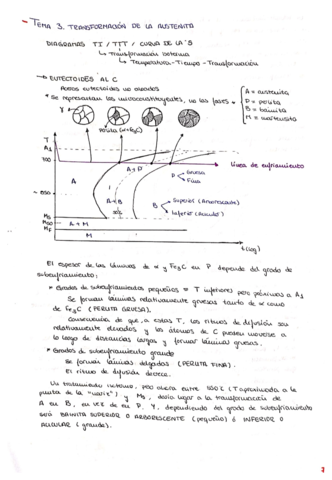 - TEMA 3. TRANSFORMACIÓN DE LA AUSTENITA
DIAGRAMAS TI / TTT / CURVA DE LA'S
↳ Transformación Isoterma
↳ Temperatura-Tiempo-Transformación
→ EUTECTOIDES AL C
Aceros eutectoides no aleados
* Se representan los microconstituyentes, no las fases *
A = austenita
P = perlita
B = bainita
M = martensita
γ
Perlita (α+Fe3C)
T
A1
700
Línea de enfriamiento
A+P
P
Gruesa
Fina
A
~ 550
A+B
B
Superior (Arborescente)
Inferior (Acicular)
50%
Ms
A + M
MF
M
t (log)
El espesor de las láminas de α y Fe3C en P depende del grado de
subenfriamiento:
* Grados de subenfriamiento pequeños = T inferiores pero próximas a A1
Se forman láminas relativamente gruesas tanto de α como
de Fe3C (PERLITA GRUESA).
Consecuencia de que, a estas T, los ritmos de difusión son
relativamente elevados y los átomos de C pueden moverse a
lo largo de distancias largas y formar láminas gruesas.
* Grados de subenfriamiento grande
Se forman láminas delgadas (PERLITA FINA).
El ritmo de difusión decrece.
Un tratamiento isotermo, pero ahora entre 550℃ (T aproximada a la
punta de la "nariz") y Ms, daría lugar a la transformación de
A en B, en vez de en P. Y, dependiendo del grado de subenfriamiento
será BAINITA SUPERIOR O ARBORESCENTE (pequeño) o INFERIOR O
ACICULAR (grande).